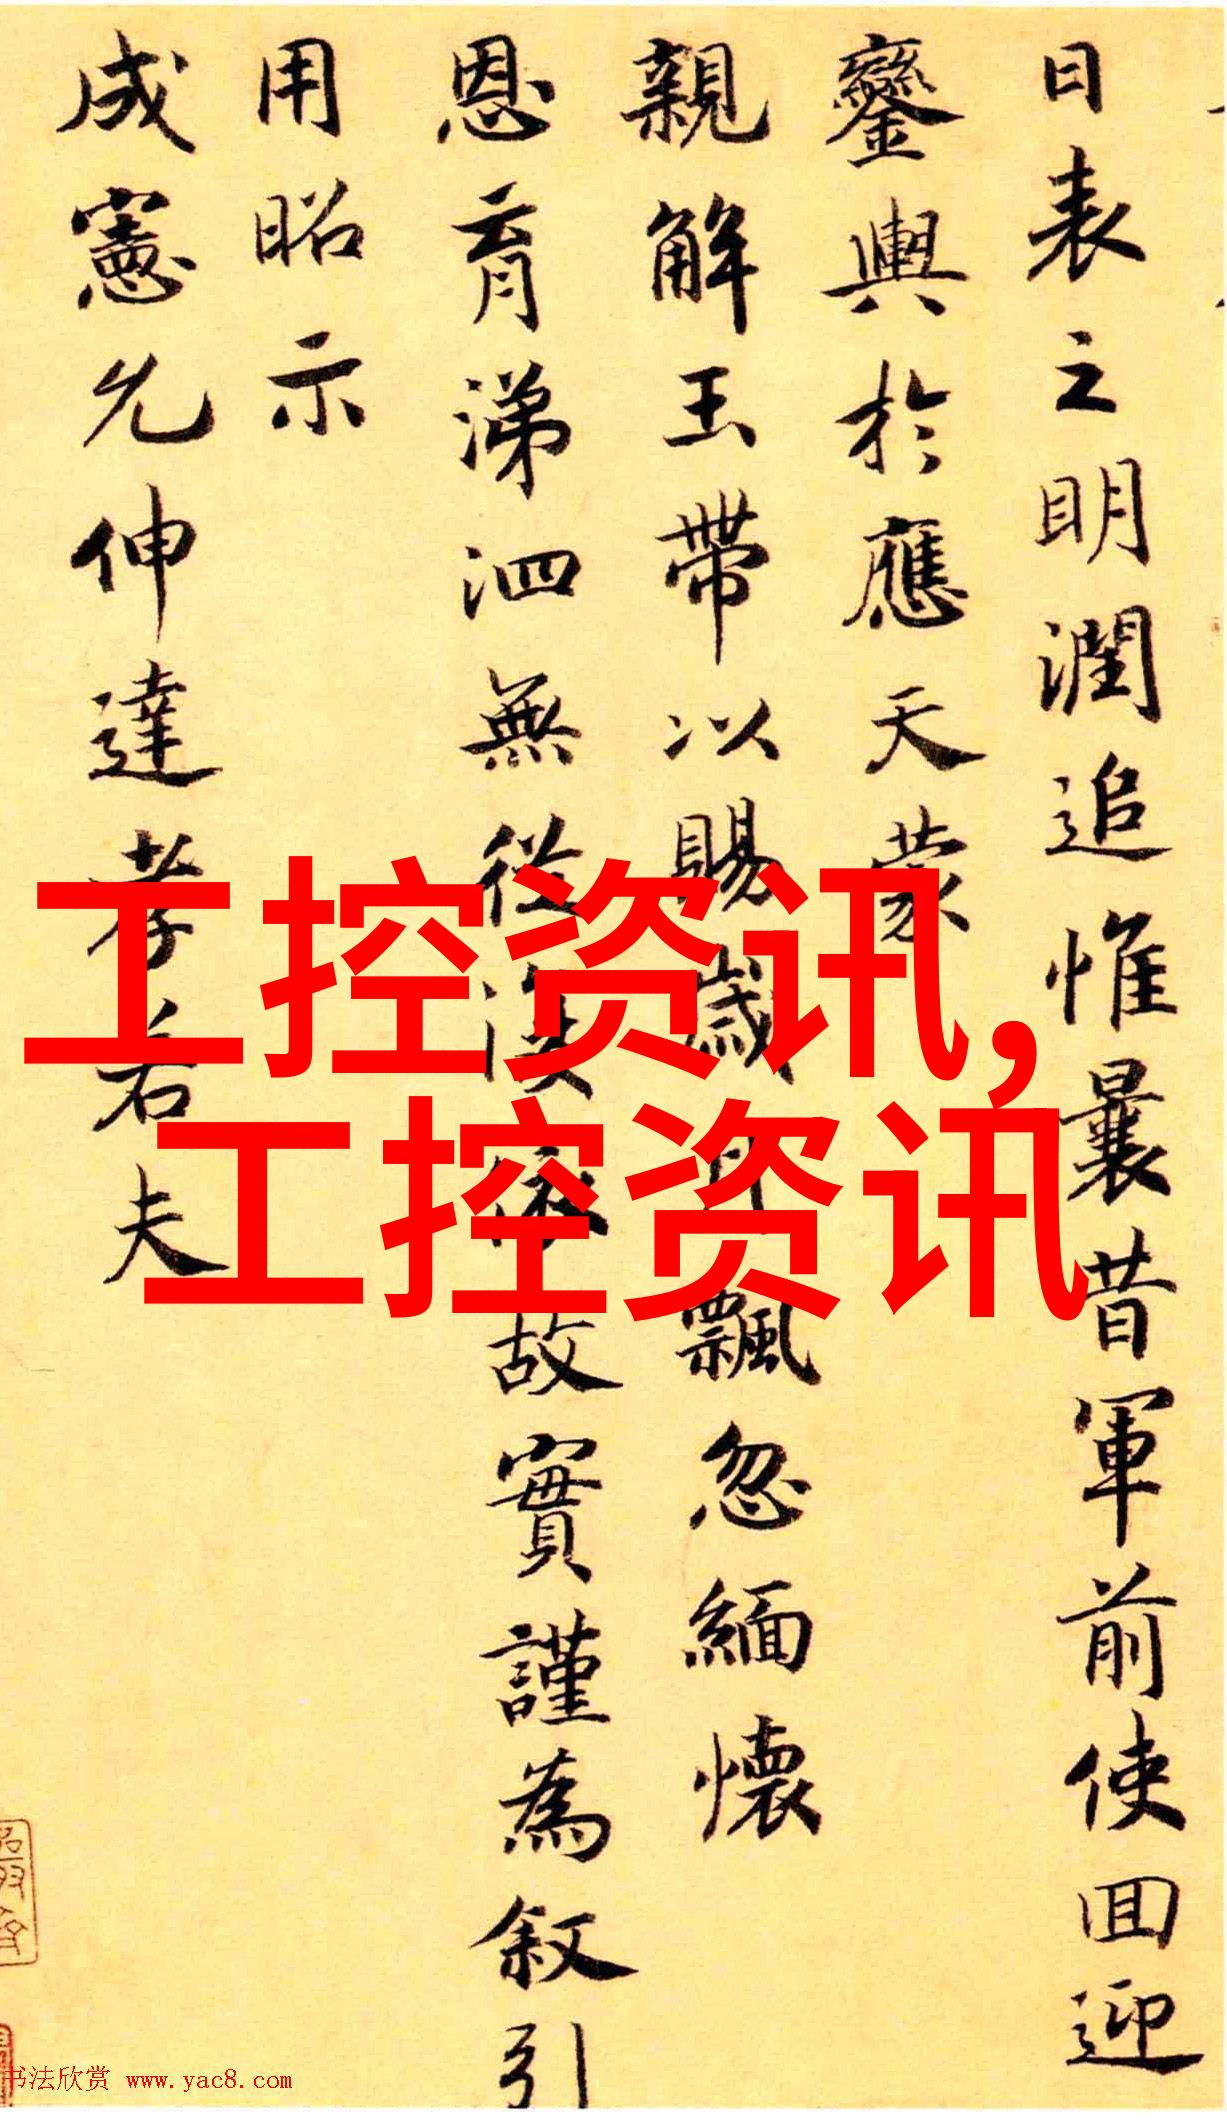 日表之明潤追惟曩昔軍前使回迎
鑾輿於應天蒙
親解玉帶以賜歲月飄忽緬懷
恩育涕泗無從漢依故實謹為叙引
用昭示
成憲允伸達孝若夫
工控资讯,
工控资讯
书法欣赏 www.yac8.com